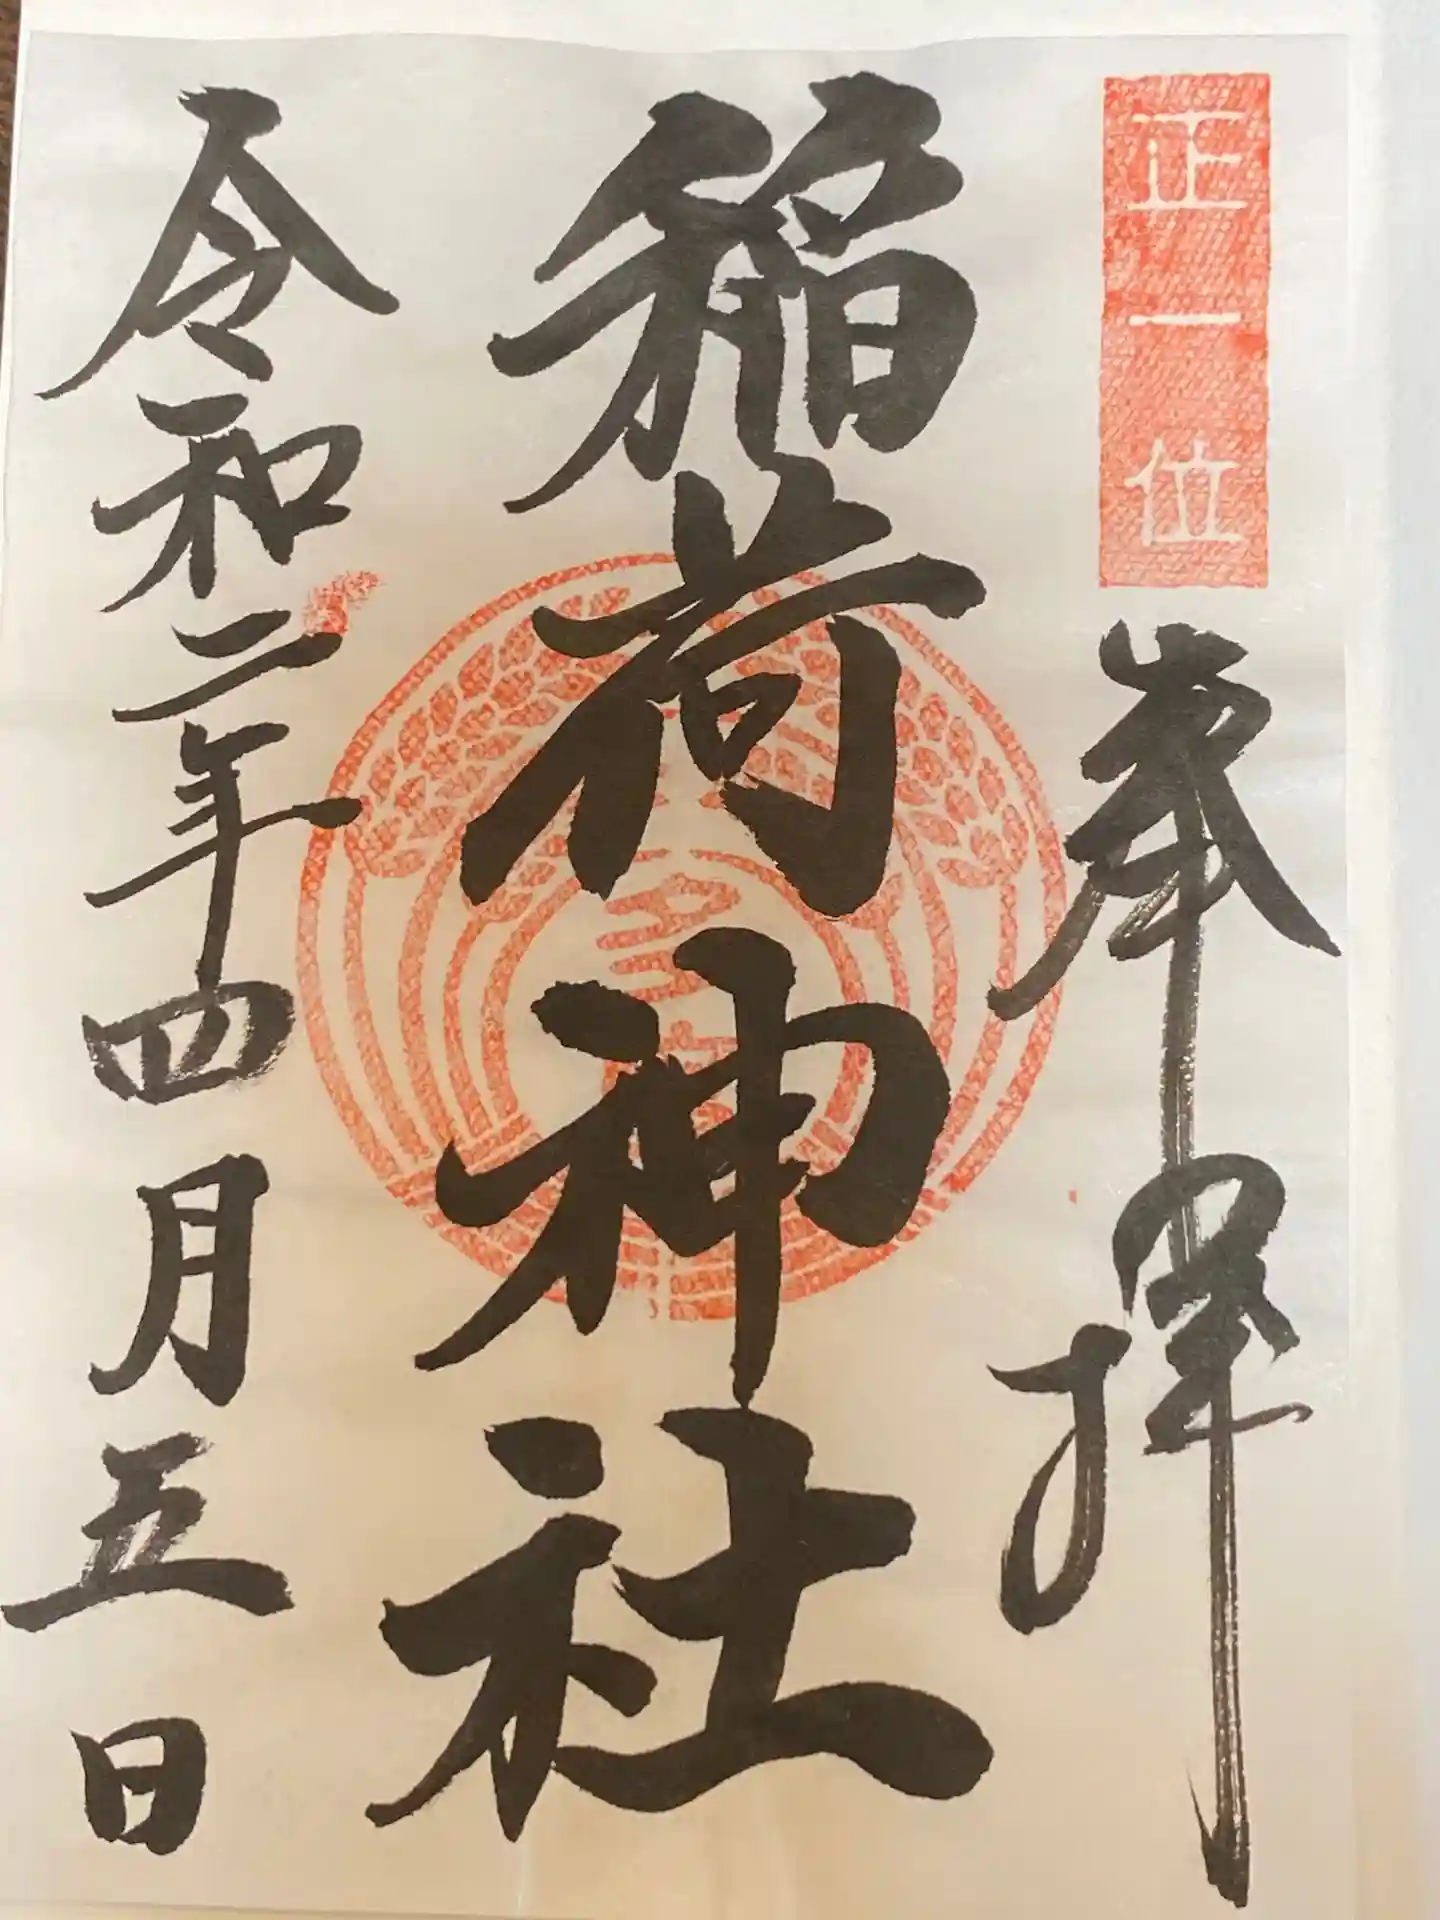 正一位
奉拝
稲荷神社
令和二年四月五日